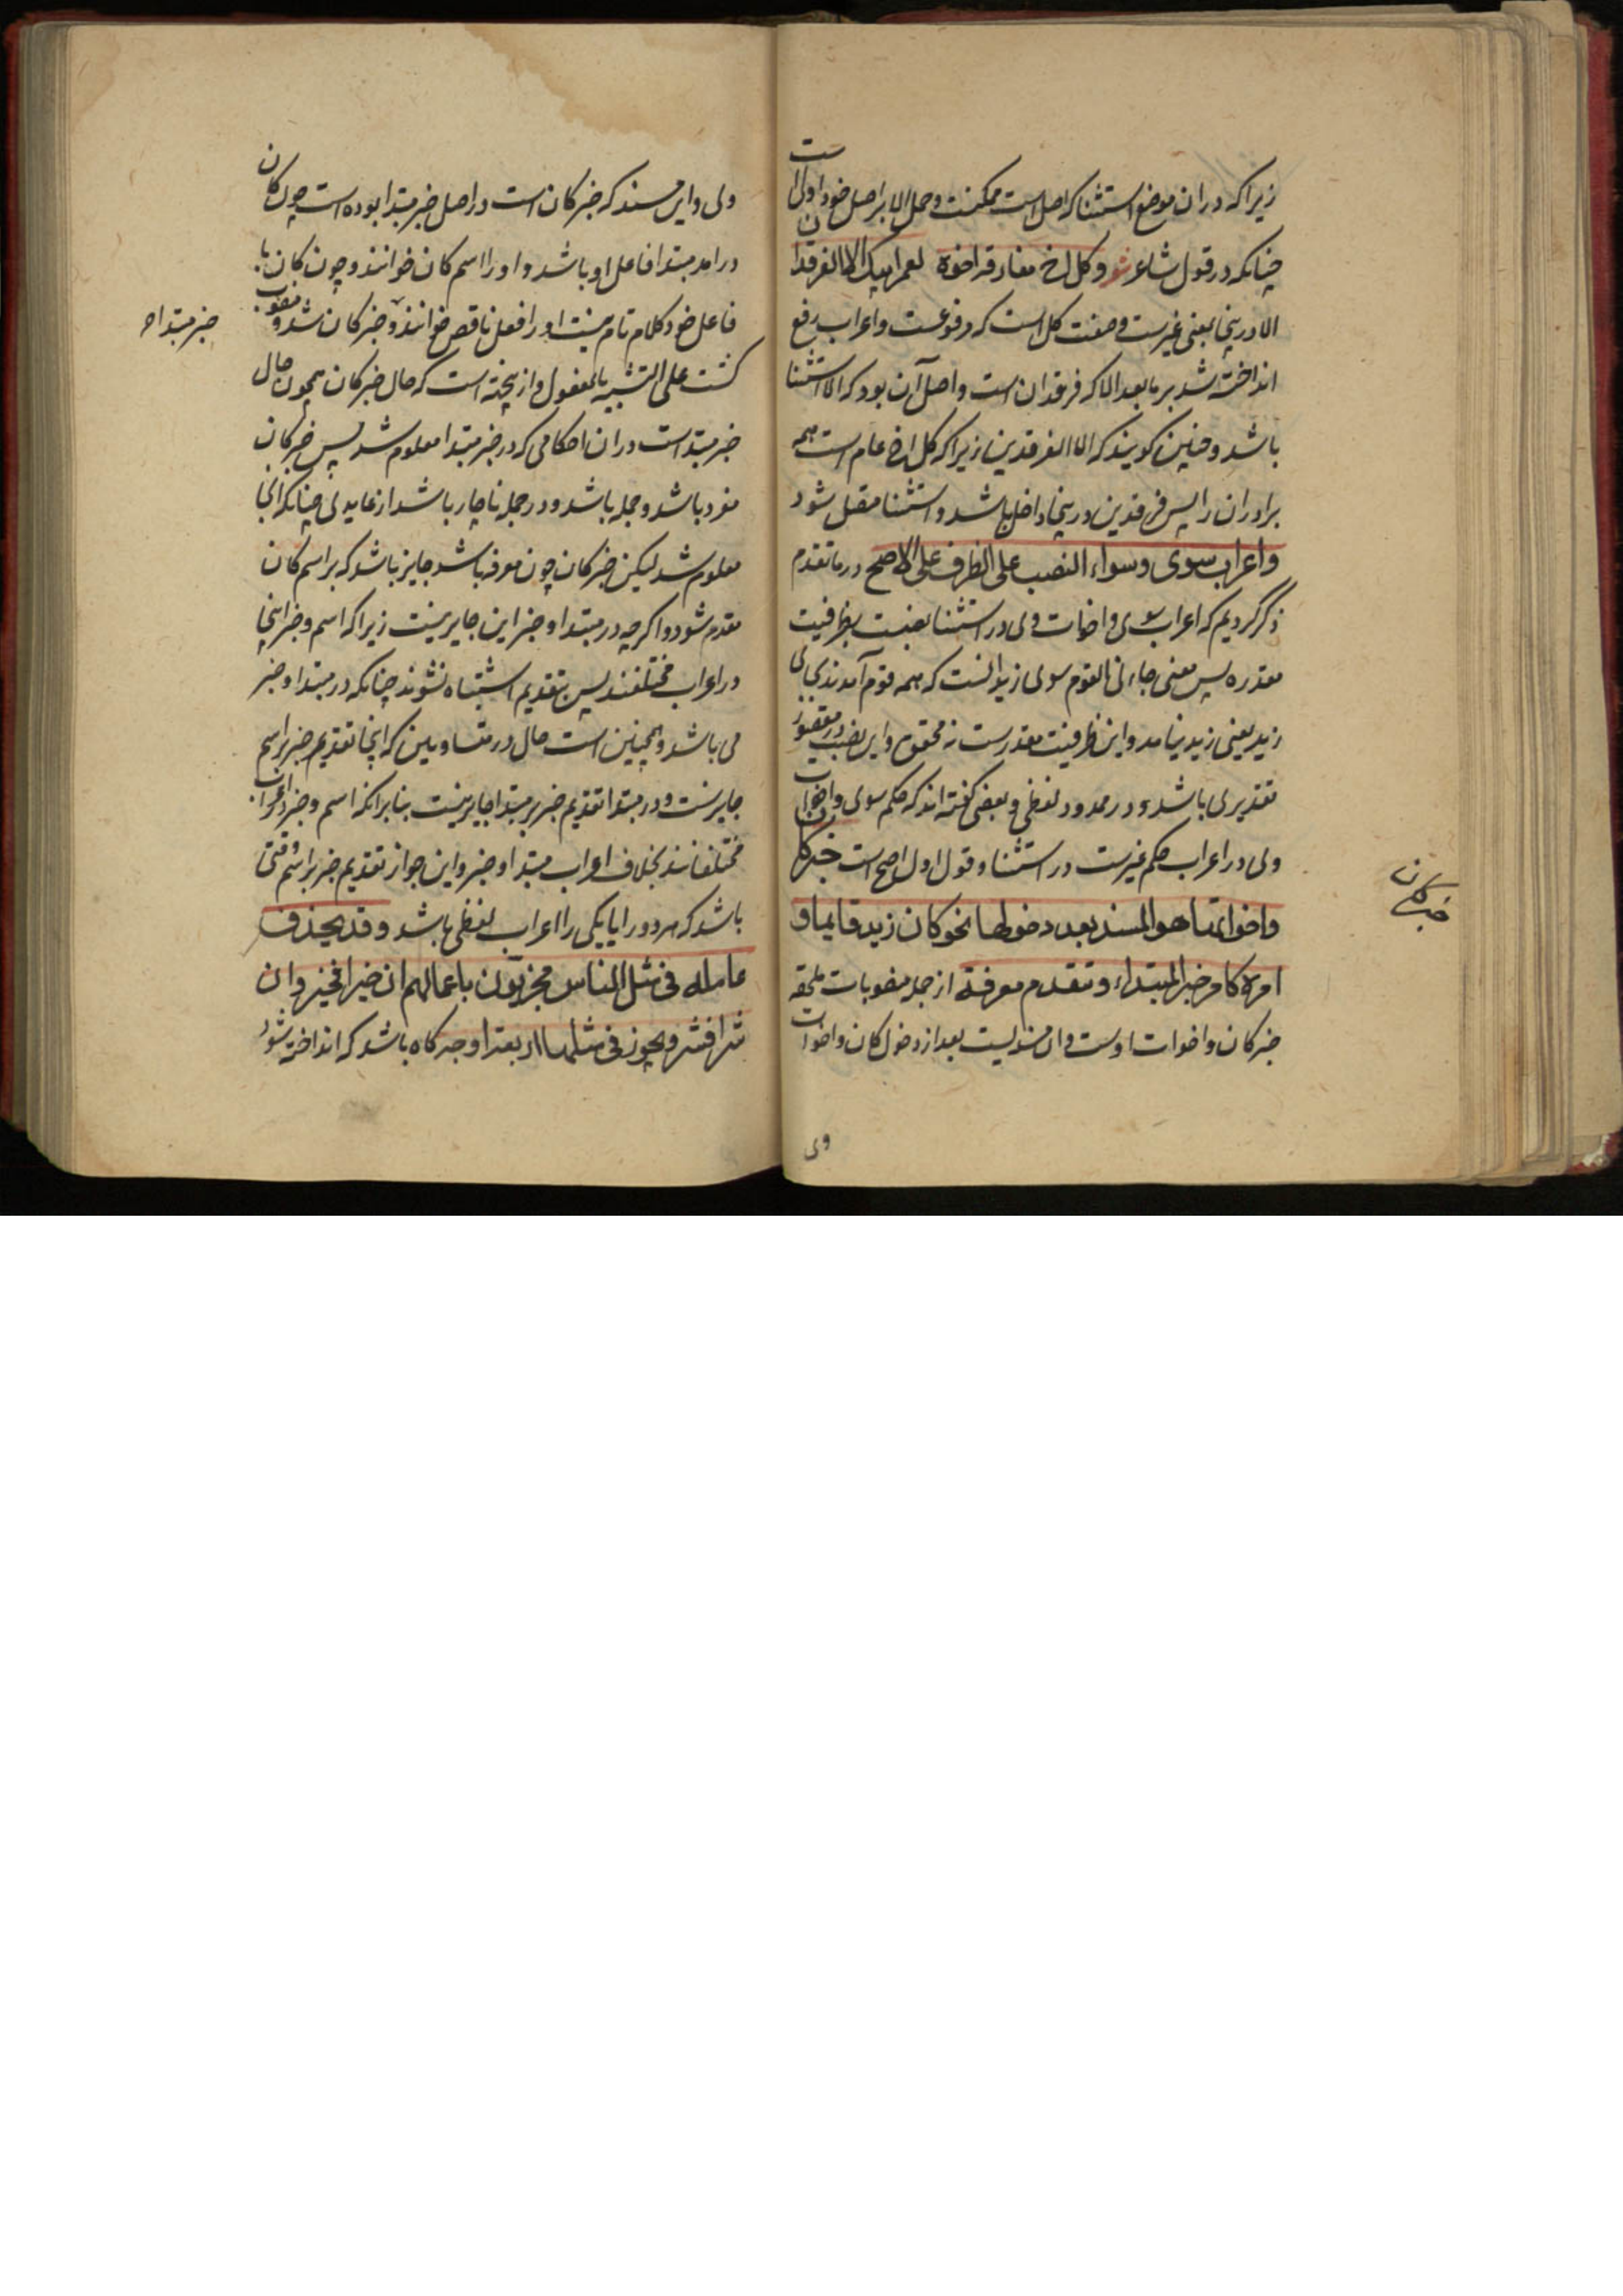 زیراکه دران موضع استثنا که اصل است ممکنست و حمل الا بر اصل خود اولی است
چنانکه در قول شاعر شعر وکل اخ مفارقه اخوه لعمر ابیک الا الفرقدان
الا درینجا بمعنی غیرست وصفت کل است که مرفوعست واعراب رفع
انداخته شد بر ما بعد الا که فرقدان است واصل آن بود که الا استثنا
باشد وچنین کویند که الا الفرقدین زیراکه کل اخ عام است همه
برادران را پس فرقدین درینجا داخل باشد و استثنا متصل شود
واعراب سوی وسواء النصب علی الظرف علی الاصح در ما تقدم
ذکر کردیم که اعراب سوی واخوات وی در استثنا نصبست بظرفیت
مقدره پس معنی جاءنی القوم سوی زید انست که همه قوم آمدند بجای
زید یعنی زید نیامد و این ظرفیت مقدرست نه محقق و این نصب در مقصور
تقدیری باشد و در ممدود لفظی و بعضی کفته اند که حکم سوی واخوات
وی در اعراب حکم غیرست در استثنا وقول اول اصح است خبر کان
واخواتها هو المسند بعد دخولها نحو کان زید قایما و
امره کامر خبر المبتداء و تتقدم معرفة از جمله منصوبات ملحقه
خبر کان واخوات اوست و آن مسندیست بعد از دخول کان واخوات
وی
خبر کان
ولی و این مسند که خبر کان است در اصل خبر مبتدا بوده است چون کان
درامد مبتدا فاعل او باشد و او را اسم کان خوانند و چون کان با
فاعل خود کلام تام نیست او را فعل ناقص خوانند و خبر کان شد و منصوب
کشت علی التشبیه بالمفعول و ازینجهته است که حال خبر کان همچون حال
خبر مبتداست دران احکامی که در خبر مبتدا معلوم شد پس خبر کان
مفرد باشد و جمله باشد و در جمله ناچار باشد از عایدی چنانکه آنجا
معلوم شد لیکن خبر کان چون معرفه باشد جایز باشد که بر اسم کان
مقدم شود و اکرچه در مبتدا و خبر این جایز نیست زیراکه اسم و خبر اینجا
در اعراب مختلفند پس بتقدیم اشتباه نشوند چنانکه در مبتدا و خبر
می باشد و همچنین است حال در متساویین که اینجا تقدیم خبر بر اسم
جایزست و در مبتدا تقدیم خبر بر مبتدا جایز نیست بنابرانکه اسم و خبر در اعراب
مختلفانند بخلاف اعراب مبتدا و خبر و این جواز تقدیم خبر بر اسم وقتی
باشد که هر دو را یا یکی را اعراب لفظی باشد وقد یحذف
عامله فی مثل الناس مجزیون باعمالهم ان خیرا فخیر وان
شرا فشر ویجوز فی مثلها اربعة اوجه کاه باشد که انداخته شود
خبر مبتدا